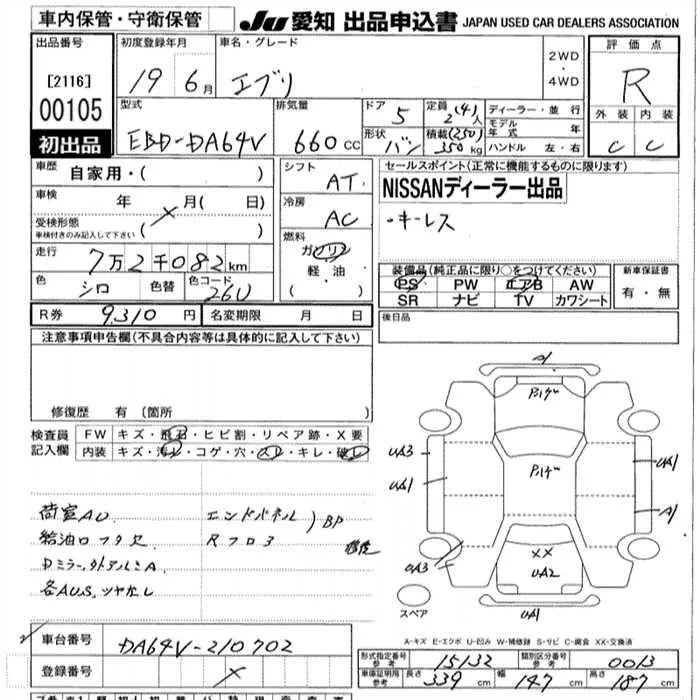 車内保管・守衛保管
JU 愛知 出品申込書 JAPAN USED CAR DEALERS ASSOCIATION
出品番号
[2116]
00105
初出品
初度登録年月
19 6月
車名・グレード
エブリ
2WD
・
4WD
評価点
R
外装 内装
C C
型式
EBD-DA64V
排気量
660 CC
ドア
5
形状
バン
定員
2(4)人
積載(250)
350kg
ディーラー・並行
モデル
年式 年
ハンドル 左・右
車歴
自家用・( )
車検
年 月( 日)
受検形態
車検付きのみ記入して下さい ( )
走行
7万2千082km
色
シロ
色替
色コード
26U
シフト
AT
冷房
AC
燃料
ガソリン
軽油
( ・ )
セールスポイント(正常に機能するものに限ります)
NISSANディーラー出品
・キーレス
装備品(純正品に限り○をつけてください)
PS PW エアB AW
SR ナビ TV カワシート
新車保証書
有・無
R券 9,310 円 名変期限 月 日
後日品
注意事項申告欄(不具合内容等は具体的に記入して下さい)
修復歴 有(箇所
検査員
記入欄
FW キズ・飛石・ヒビ割・リペア跡・X要
内装 キズ・汚レ・コゲ・穴・スレ・キレ・破レ
荷室AU エンドパネル)BP
給油口フタ欠 Rフロ3 修復
Dミラー,タアルミA
各AUS,ツヤなし
A1
Pバゲ
Pバゲ
UA3
UA1
UA1
A1
UA3
XX
UA2
UA1
スペア
A-キズ E-エクボ U-凹み W-補修跡 S-サビ C-腐食 XX-交換済
車台番号 DA64V-210702
登録番号
形式指定番号
参考
15132
類別区分番号
参考
0013
車庫証明用
参考
長さ 339 cm 幅 147 cm 高さ 187 cm